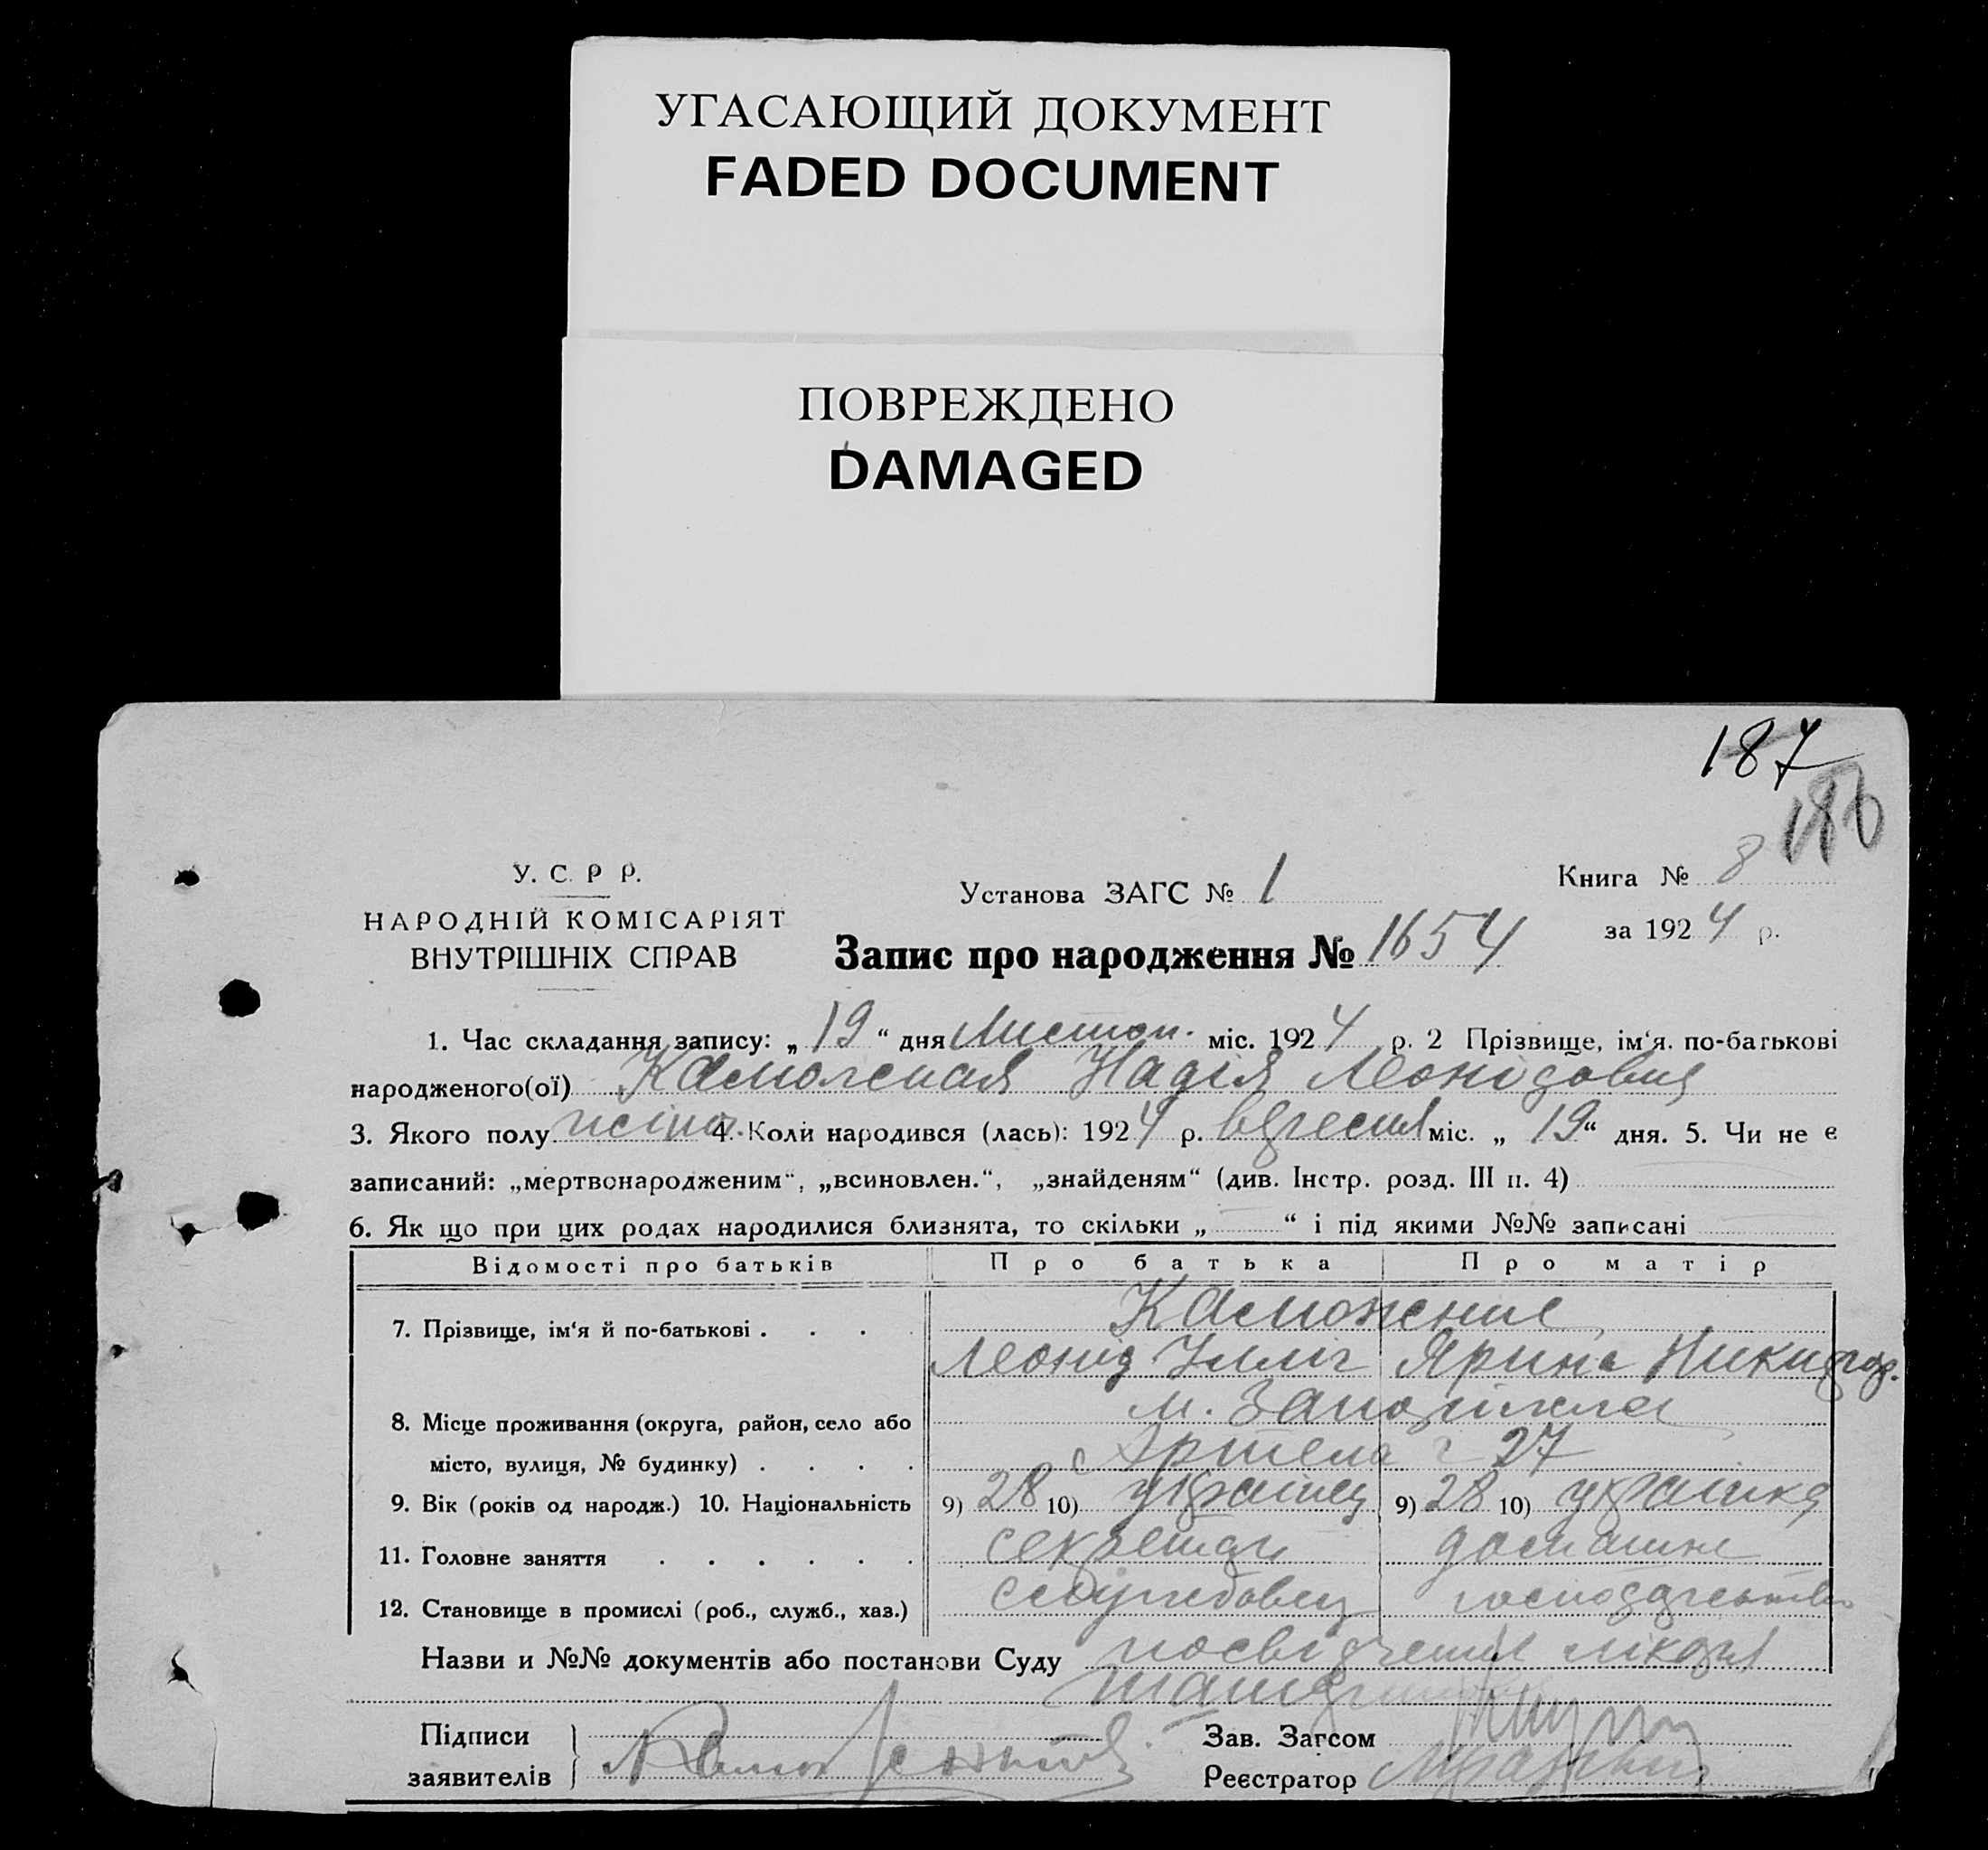 УГАСАЮЩИЙ ДОКУМЕНТ
FADED DOCUMENT
ПОВРЕЖДЕНО
DAMAGED
187
186
У. С. Р Р.
НАРОДНІЙ КОМІСАРІЯТ
ВНУТРІШНІХ СПРАВ
Установа ЗАГС № 1
Книга № 8
за 1924 р.
Запис про народження № 1654
1. Час складання запису: „ 19 “ дня Листоп. міс. 1924 р. 2 Прізвище, ім‘я. по-батькові
народженого(ої) Надія Леонідовна
3. Якого полу жіноч. 4. Коли народився (лась): 1924 р. вересня міс. „ 19 “ дня. 5. Чи не є
записаний: „мертвонародженим“, „всиновлен.“, „знайденям“ (див. Інстр. розд. III п. 4)
6. Як що при цих родах народилися близнята, то скільки „ “ і під якими №№ записані
Відомості про батьків Про батька Про матір
7. Прізвище, ім‘я й по-батькові . . . .
Леонид Ілліч Ярина Никифор.
8. Місце проживання (округа, район, село або м. Запоріжжя
місто, вулиця, № будинку) . . . . Артема 27
9. Вік (років од народж.) 10. Національність 9) 28 10) українец 9) 28 10) українка
11. Головне заняття . . . . . . секретар домашнє
12. Становище в промислі (роб., служб., хаз.) службовец господарство
Назви и №№ документів або постанови Суду посвідчення лікаря
Підписи
заявителів
Зав. Загсом
Реєстратор